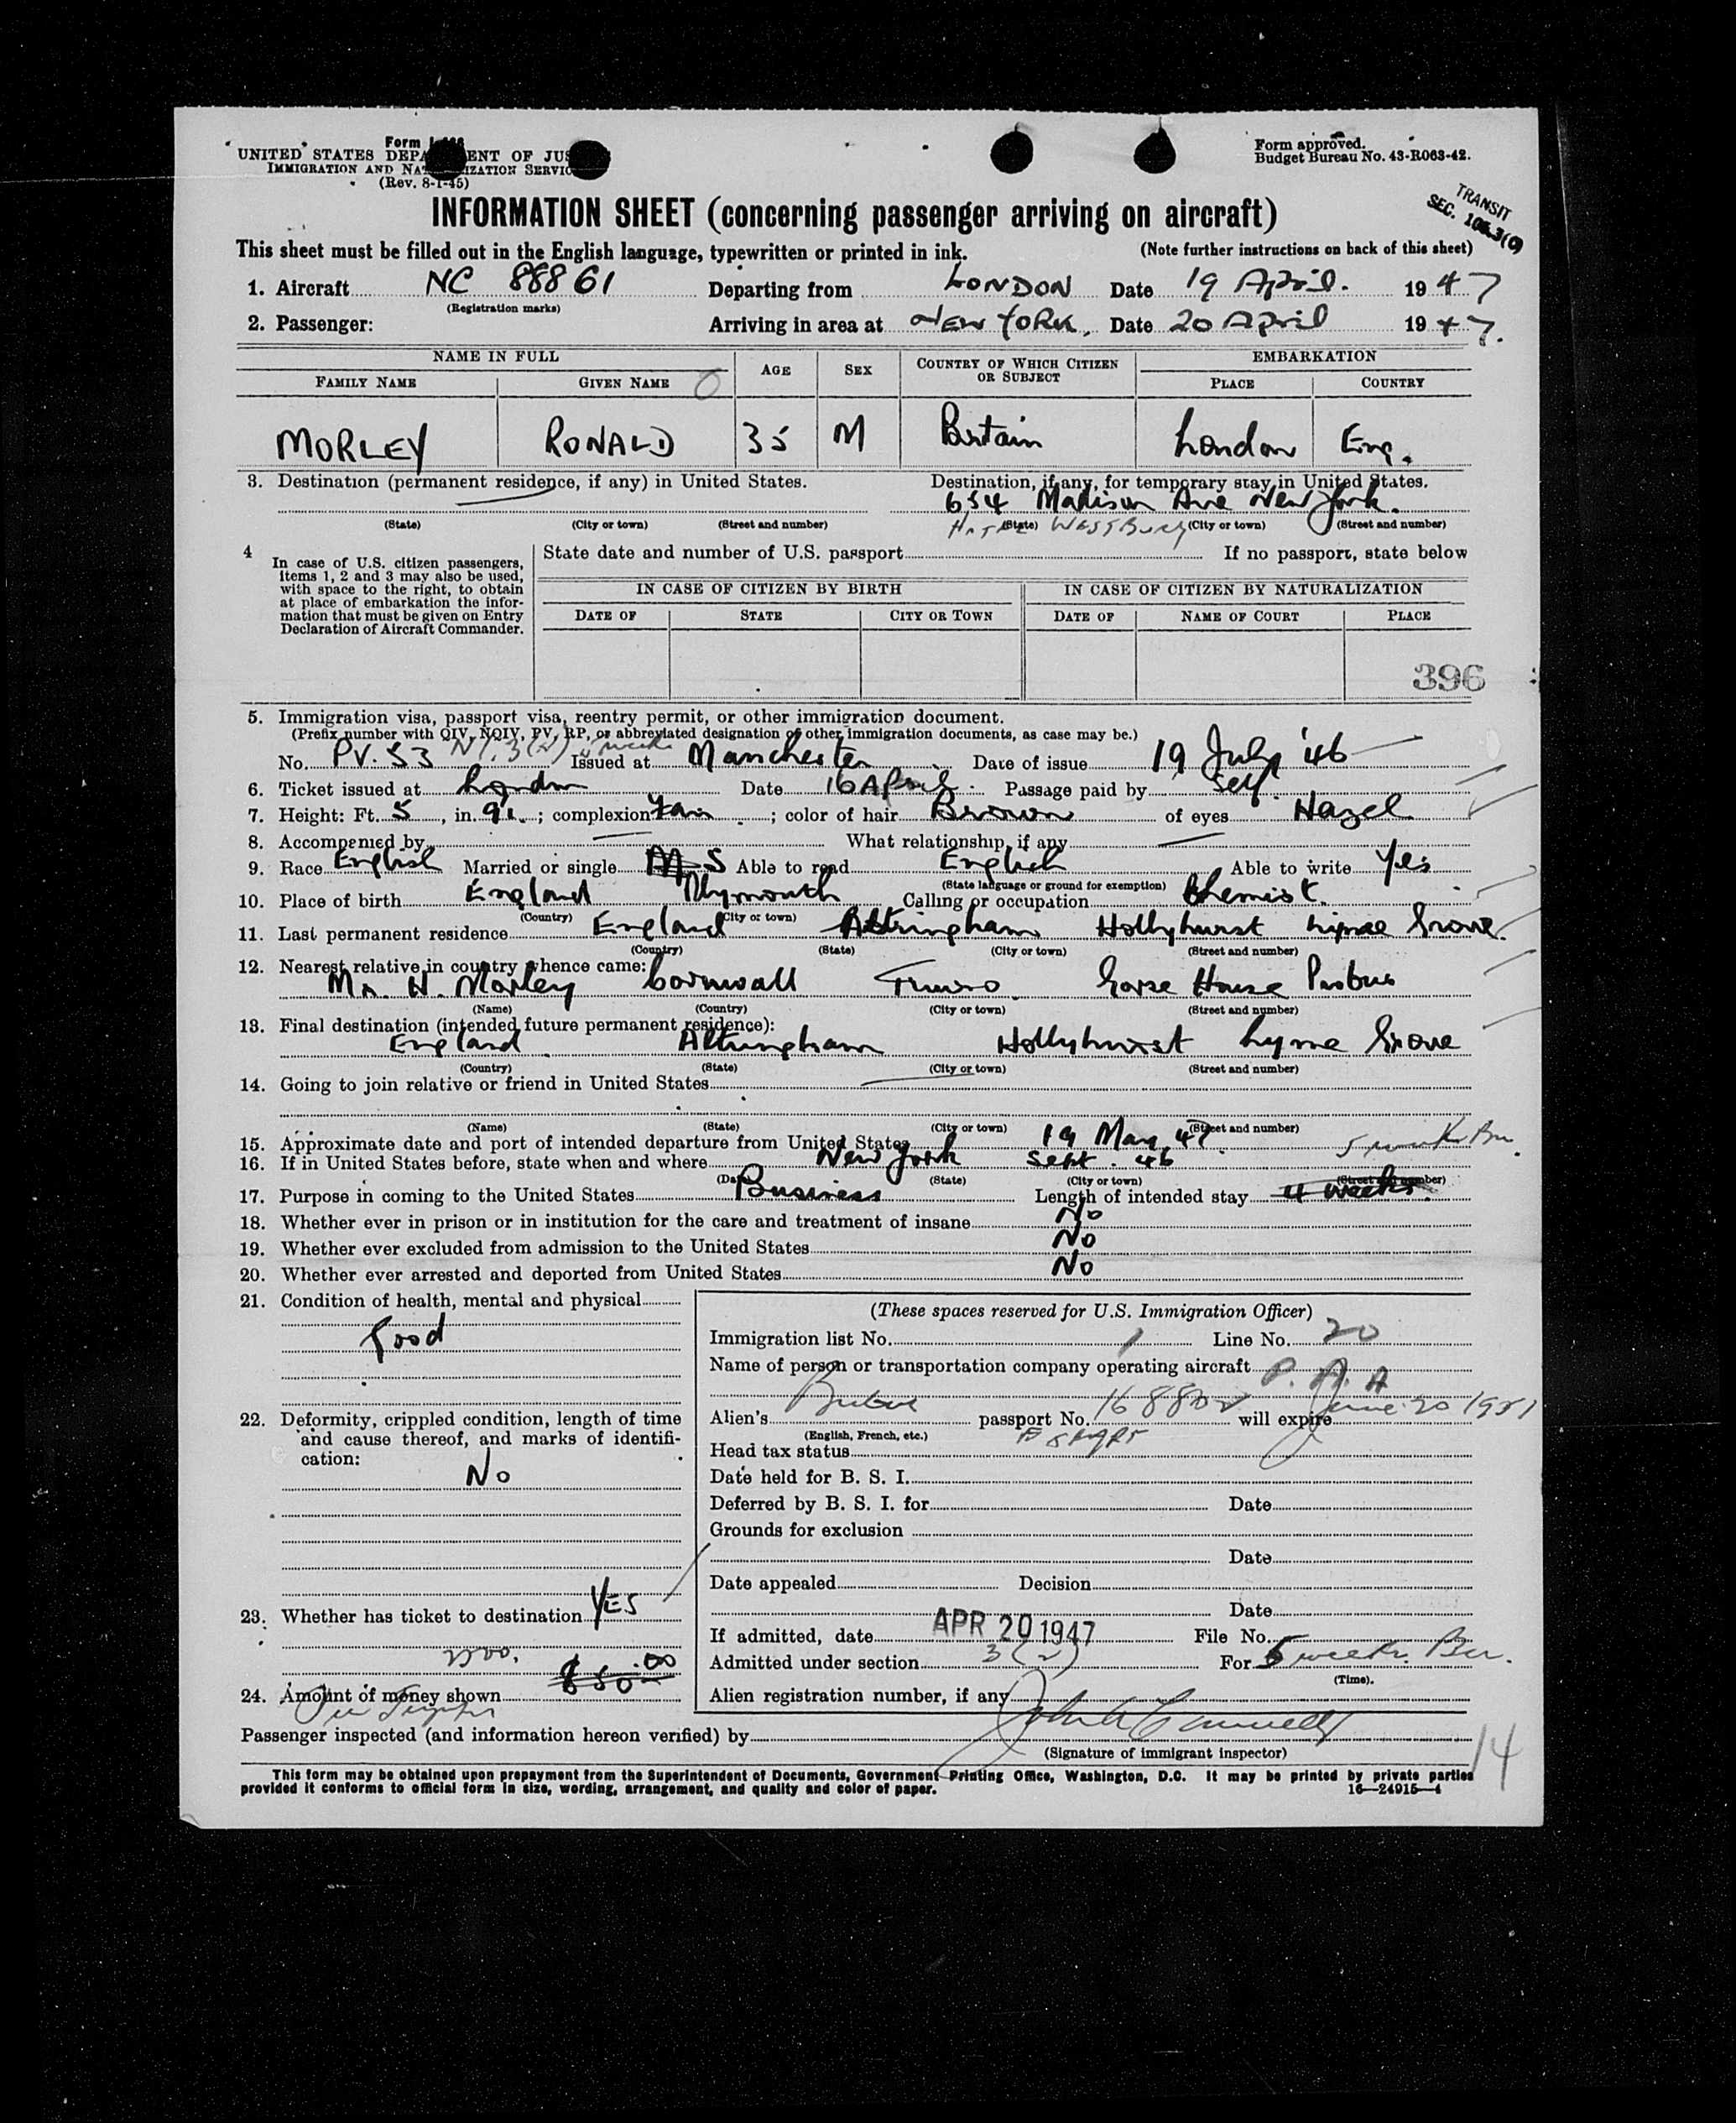 Form I-466
UNITED STATES DEPARTMENT OF JUSTICE
IMMIGRATION AND NATURALIZATION SERVICE
(Rev. 8-1-45)
Form approved.
Budget Bureau No. 43-R063-42.
TRANSIT
SEC.
INFORMATION SHEET (concerning passenger arriving on aircraft)
This sheet must be filled out in the English language, typewritten or printed in ink. (Note further instructions on back of this sheet)
1. Aircraft NC 88861 Departing from LONDON Date 19 April. 1947
(Registration marks)
2. Passenger: Arriving in area at NEW YORK, Date 20 April 1947.
NAME IN FULL AGE SEX COUNTRY OF WHICH CITIZEN OR SUBJECT EMBARKATION
FAMILY NAME GIVEN NAME PLACE COUNTRY
MORLEY RONALD 35 M Britain London Eng.
3. Destination (permanent residence, if any) in United States. Destination, if any, for temporary stay in United States.
654 Madison Ave New York.
(State) (City or town) (Street and number) (State) (City or town) (Street and number)
HOTEL WESTBURY
4 In case of U.S. citizen passengers, items 1, 2 and 3 may also be used, with space to the right, to obtain at place of embarkation the information that must be given on Entry Declaration of Aircraft Commander.
State date and number of U.S. passport If no passport, state below
IN CASE OF CITIZEN BY BIRTH IN CASE OF CITIZEN BY NATURALIZATION
DATE OF STATE CITY OR TOWN DATE OF NAME OF COURT PLACE
396
5. Immigration visa, passport visa, reentry permit, or other immigration document.
(Prefix number with QIV, NQIV, PV, RP, or abbreviated designation of other immigration documents, as case may be.)
No. PV. 53 3(2) Issued at Manchester Date of issue 19 July '46
6. Ticket issued at London Date 16 April. Passage paid by Self.
7. Height: Ft. 5, in. 9½.; complexion Fair; color of hair Brown of eyes Hazel
8. Accompanied by — What relationship, if any —
9. Race English Married or single M S Able to read English Able to write Yes
(State language or ground for exemption)
10. Place of birth England Plymouth Calling or occupation Chemist.
(Country) (City or town)
11. Last permanent residence England Altringham Hollyhurst Lyme Grove.
(Country) (State) (City or town) (Street and number)
12. Nearest relative in country whence came:
Mr. H. Morley Cornwall Truro Gorse House Probus
(Name) (Country) (City or town) (Street and number)
13. Final destination (intended future permanent residence):
England Altringham Hollyhurst Lyme Grove
(Country) (State) (City or town) (Street and number)
14. Going to join relative or friend in United States
(Name) (State) (City or town) (Street and number)
15. Approximate date and port of intended departure from United States 19 May 47
16. If in United States before, state when and where New York Sept. 46
(State) (City or town) (Street and number)
17. Purpose in coming to the United States Business Length of intended stay 4 weeks
18. Whether ever in prison or in institution for the care and treatment of insane No
19. Whether ever excluded from admission to the United States No
20. Whether ever arrested and deported from United States No
21. Condition of health, mental and physical
Good
22. Deformity, crippled condition, length of time and cause thereof, and marks of identification:
No
23. Whether has ticket to destination YES
$50.00
24. Amount of money shown
(These spaces reserved for U.S. Immigration Officer)
Immigration list No. 1 Line No. 20
Name of person or transportation company operating aircraft P. A. A
Alien's passport No. will expire June 20 1951
(English, French, etc.)
Head tax status
Date held for B. S. I.
Deferred by B. S. I. for Date
Grounds for exclusion
Date
Date appealed Decision
Date
If admitted, date APR 20 1947 File No.
Admitted under section 3(2) For 5 weeks Bu.
(Time).
Alien registration number, if any
Passenger inspected (and information hereon verified) by
(Signature of immigrant inspector)
14
This form may be obtained upon prepayment from the Superintendent of Documents, Government Printing Office, Washington, D.C. It may be printed by private parties
provided it conforms to official form in size, wording, arrangement, and quality and color of paper. 16—24915-1